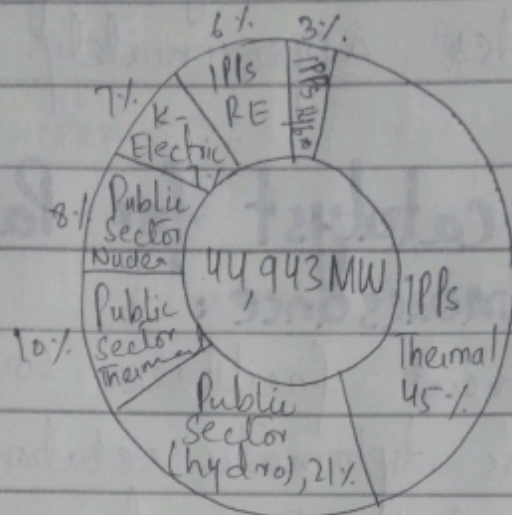 6%
3%
IPPs
RE
IPPs Hydro
7%
K-
Electric
7%
8%
Public
Sector
Nuclear
44,943MW
IPPs
Thermal
45%
10%
Public
Sector
Thermal
Public
Sector
(hydro), 21%
catalyst